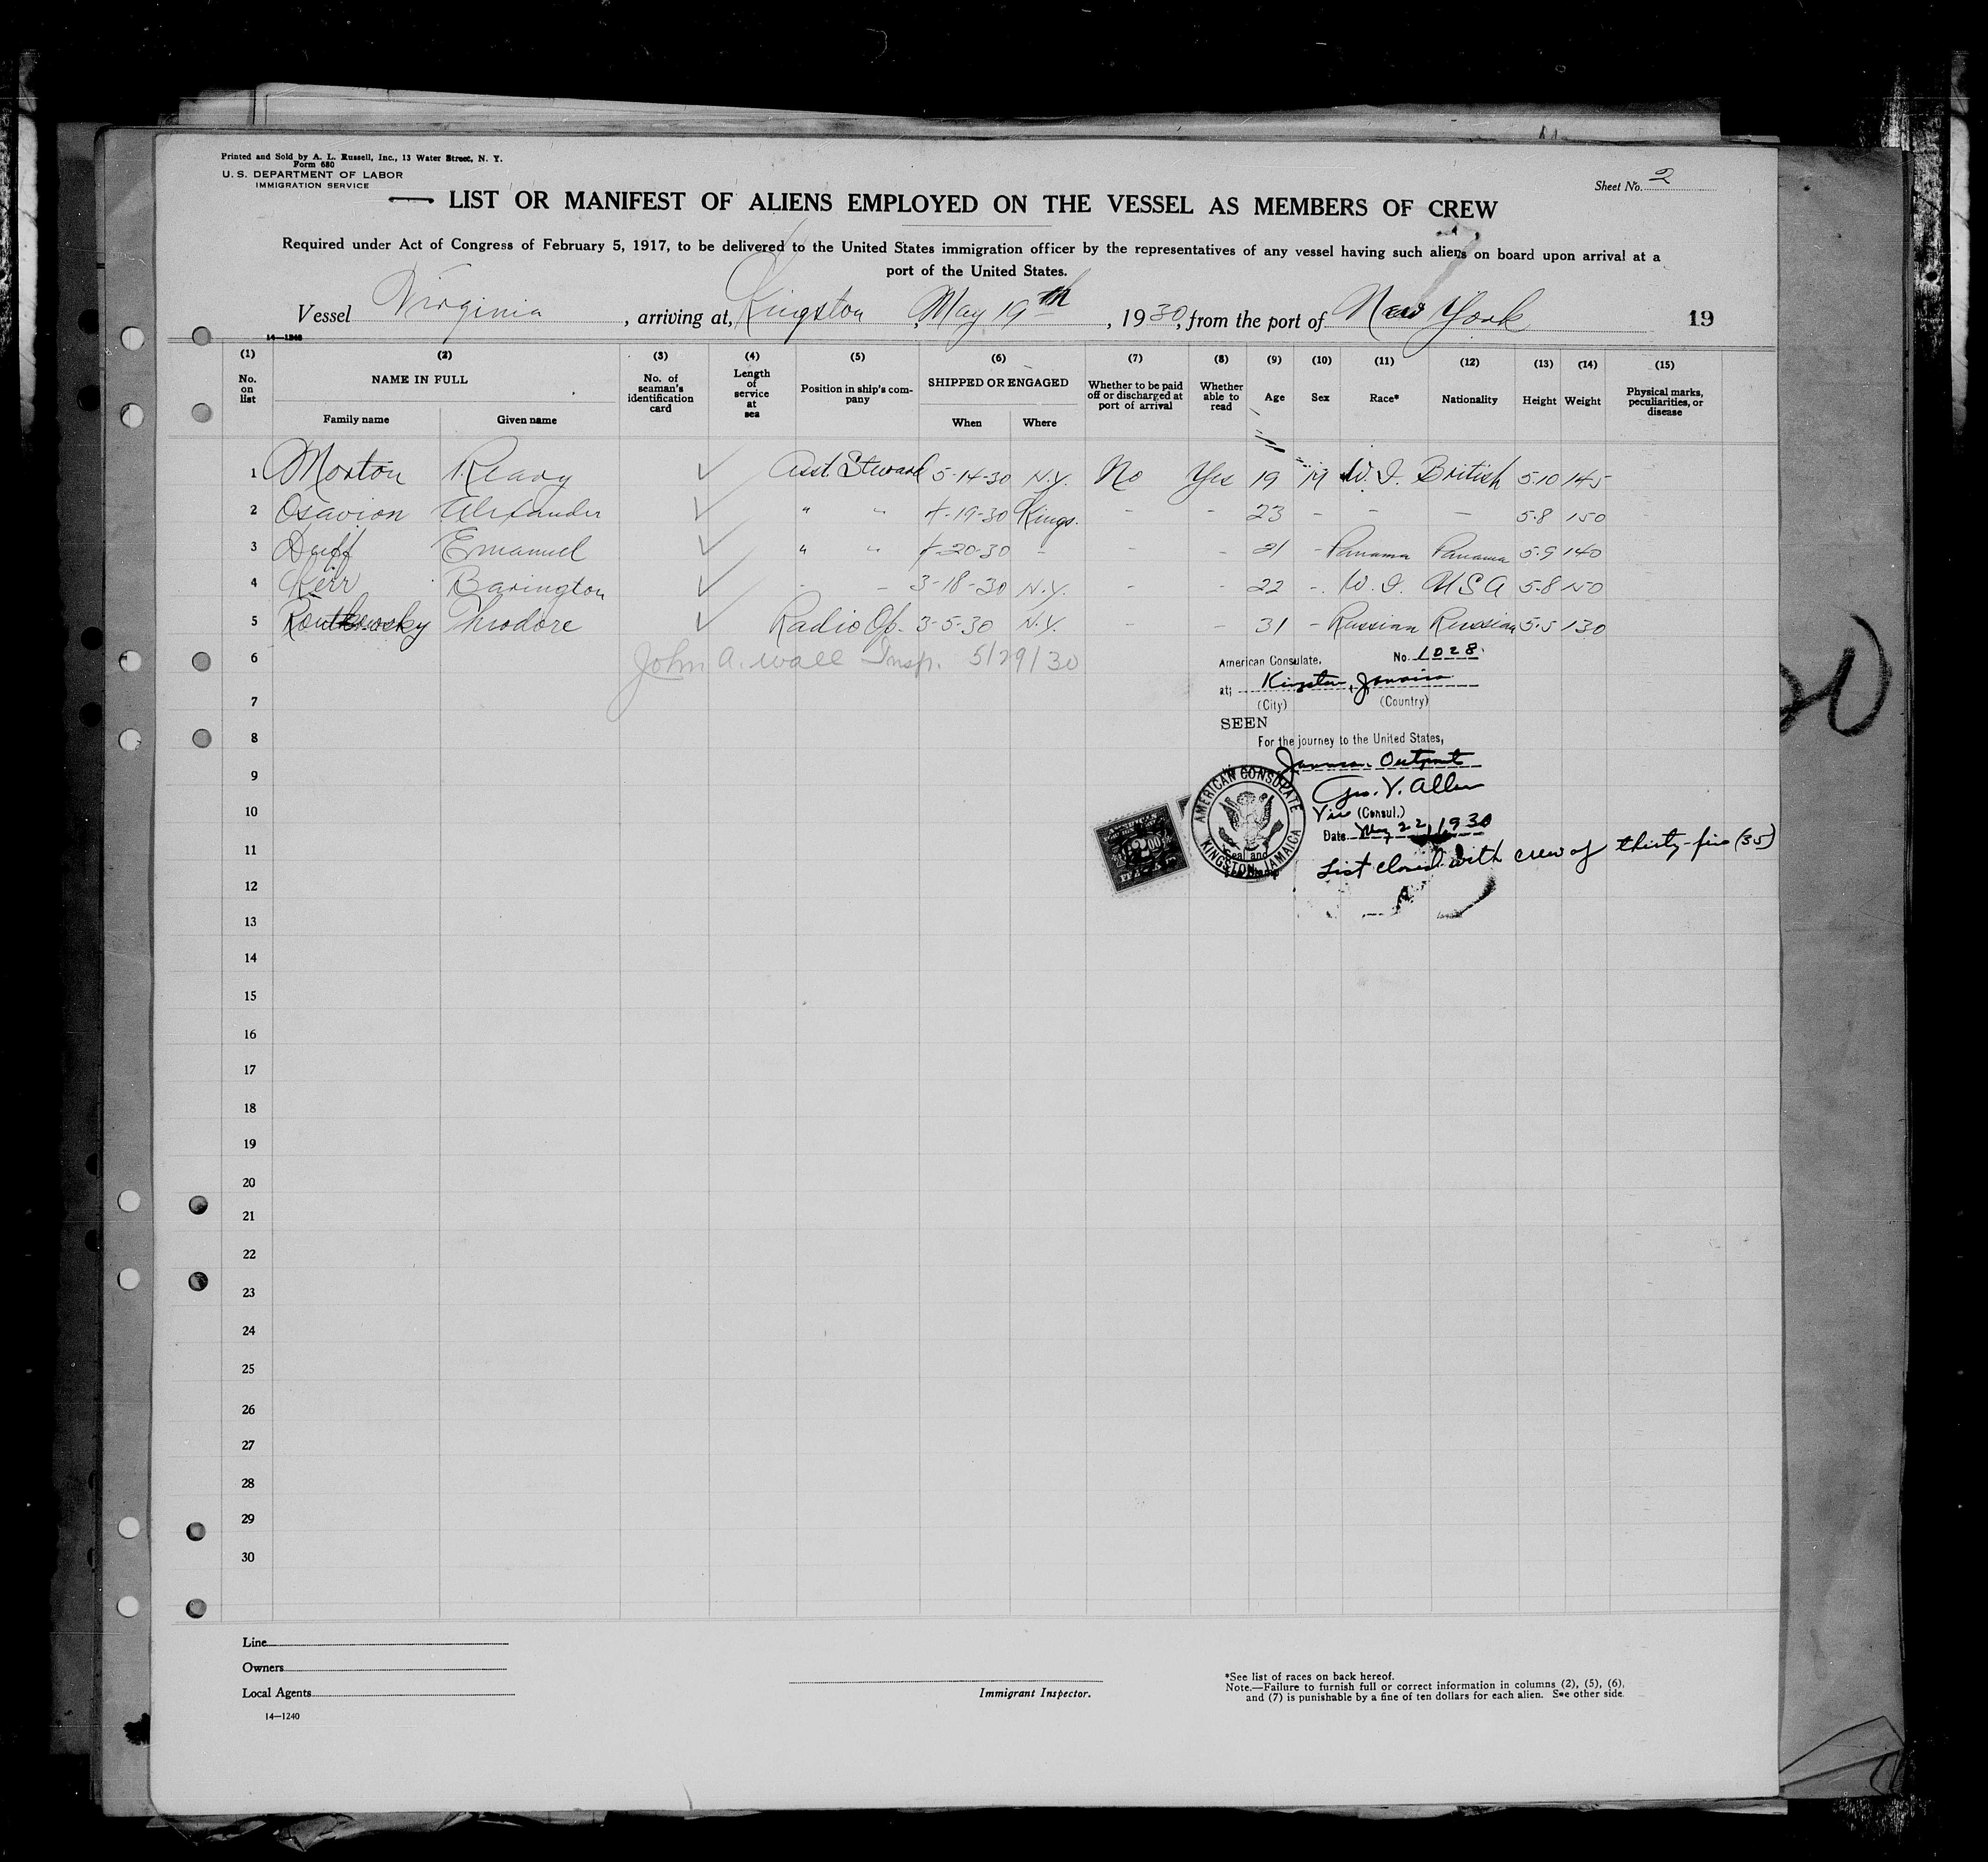 Printed and Sold by A. L. Russell, Inc., 13 Water Street, N. Y.
Form 680
U. S. DEPARTMENT OF LABOR
IMMIGRATION SERVICE
Sheet No. 2
LIST OR MANIFEST OF ALIENS EMPLOYED ON THE VESSEL AS MEMBERS OF CREW
Required under Act of Congress of February 5, 1917, to be delivered to the United States immigration officer by the representatives of any vessel having such aliens on board upon arrival at a
port of the United States.
Vessel Virginia, arriving at, Kingston May 19th, 1930, from the port of New York 19
14—1240
(1) (2) (3) (4) (5) (6) (7) (8) (9) (10) (11) (12) (13) (14) (15)
No. on list NAME IN FULL Family name Given name No. of seaman's identification card Length of service at sea Position in ship's company SHIPPED OR ENGAGED When Where Whether to be paid off or discharged at port of arrival Whether able to read Age Sex Race* Nationality Height Weight Physical marks, peculiarities, or disease
1 Morton ✓ Asst. Steward 5-14-30 N.Y. No Yes 19 M W.I. British 5.10 145
2 Osavion Alexander ✓ " " 4-19-30 Kings. - - 23 - - - 5.8 150
3 Duff Emanuel ✓ " " 4-20-30 - - - 21 - Panama Panama 5.9 140
4 Kerr Barington ✓ - - 3-18-30 N.Y. - - 22 - W.I. USA 5.8 150
5 Theodore ✓ Radio Op. 3-5-30 N.Y. - - 31 - Russian Russian 5.5 130
6 John A. Wall Insp. 5/29/30
American Consulate, No. 1028.
at; Kingston, Jamaica
(City) (Country)
7
SEEN
8
For the journey to the United States,
9
Jamaica Outport
Geo. V. Allen
10
Vice (Consul.)
Date May 22, 1930
AMERICAN CONSULATE
KINGSTON, JAMAICA
Seal and
11
List closed with crew of thirty-five (35)
12
13
14
15
16
17
18
19
20
21
22
23
24
25
26
27
28
29
30
Line
Owners
Local Agents
Immigrant Inspector.
*See list of races on back hereof.
Note.—Failure to furnish full or correct information in columns (2), (5), (6),
and (7) is punishable by a fine of ten dollars for each alien. See other side.
14—1240